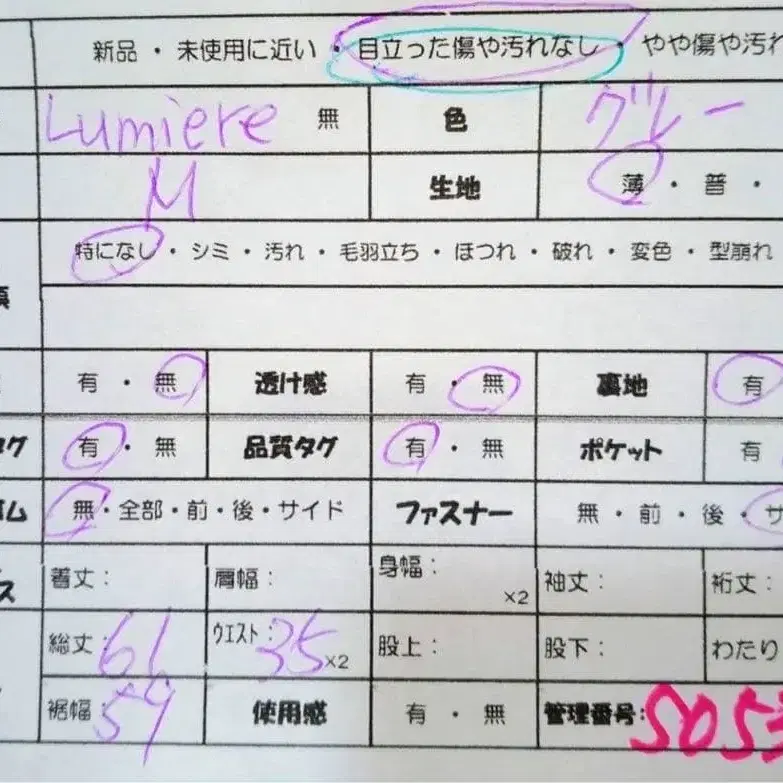 新品 ・ 未使用に近い ・ 目立った傷や汚れなし ・ やや傷や汚れ
Lumiere 無 色 グレー
M 生地 薄 ・ 普 ・
特になし ・ シミ ・ 汚れ ・ 毛羽立ち ・ ほつれ ・ 破れ ・ 変色 ・ 型崩れ
有 ・ 無 透け感 有 ・ 無 裏地 有
タグ 有 ・ 無 品質タグ 有 ・ 無 ポケット 有
ゴム 無・全部・前・後・サイド ファスナー 無 ・ 前 ・ 後 ・ サ
ス 着丈: 肩幅: 身幅: ×2 袖丈: 裄丈:
総丈: 61 ウエスト: 35 ×2 股上: 股下: わたり
裾幅: 59 使用感 有 ・ 無 管理番号: 5053